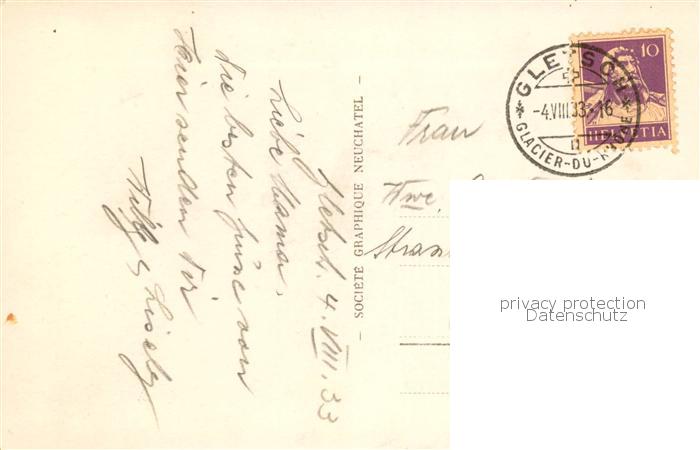 Gletsch. 4.VIII.33
Liebe Mama.
Die besten Grüsse von
hier senden Dir
& Lisely
SOCIÉTÉ GRAPHIQUE NEUCHATEL
Frau
Wwe
10
HELVETIA
GLETSCH
-4.VIII.33-16
GLACIER-DU-RHONE
privacy protection
Datenschutz